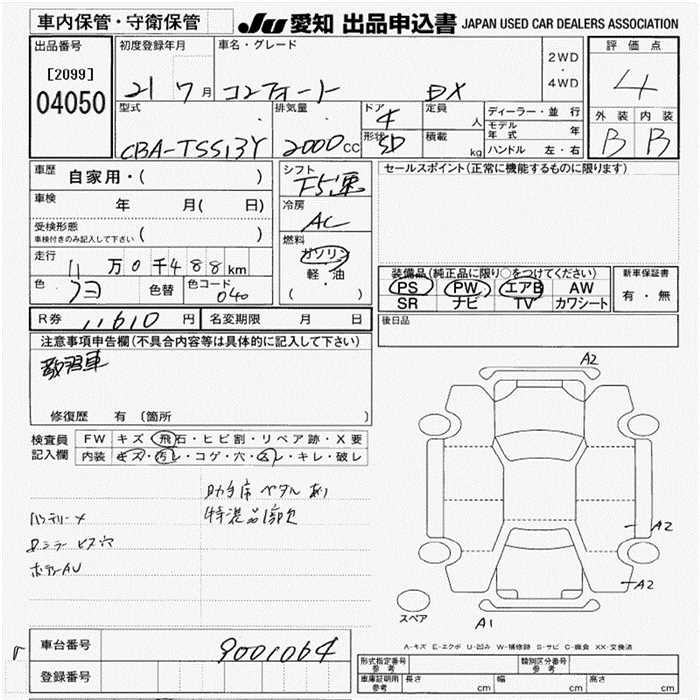 車内保管・守衛保管
JU 愛知 出品申込書 JAPAN USED CAR DEALERS ASSOCIATION
出品番号
[2099]
04050
初度登録年月
21 7 月
車名・グレード
コンフォート DX
2WD
・
4WD
評価点
4
外装 内装
B B
型式
CBA-TSS13Y
排気量
2000 CC
ドア
4
形状
SD
定員
人
積載
kg
ディーラー・並行
モデル年式 年
ハンドル 左・右
車歴
自家用・( )
車検
年 月( 日)
受検形態
車検付きのみ記入して下さい ( )
走行
11 万 0 千 4 8 8 km
色 色替 色コード
040
シフト
F5速
冷房
AC
燃料
ガソリン
軽・油
( )
セールスポイント(正常に機能するものに限ります)
装備品(純正品に限り○をつけてください)
PS PW エアB AW
SR ナビ TV カワシート
新車保証書
有・無
R券 11610 円
名変期限 月 日
後日品
注意事項申告欄(不具合内容等は具体的に記入して下さい)
教習車
修復歴 有 (箇所 )
検査員
記入欄
FW キズ・飛石・ヒビ割・リペア跡・X要
内装 キズ・汚レ・コゲ・穴・スレ・キレ・破レ
助手席 ペダル あり
バッテリー
ビス穴
ボディ
A2
A2
A2
A1
スペア
A-キズ E-エクボ U-凹み W-補修跡 S-サビ C-腐食 XX-交換済
車台番号
9001064
登録番号
型式指定番号
参考
類別区分番号
参考
車庫証明用
参考
長さ cm 幅 cm 高さ cm